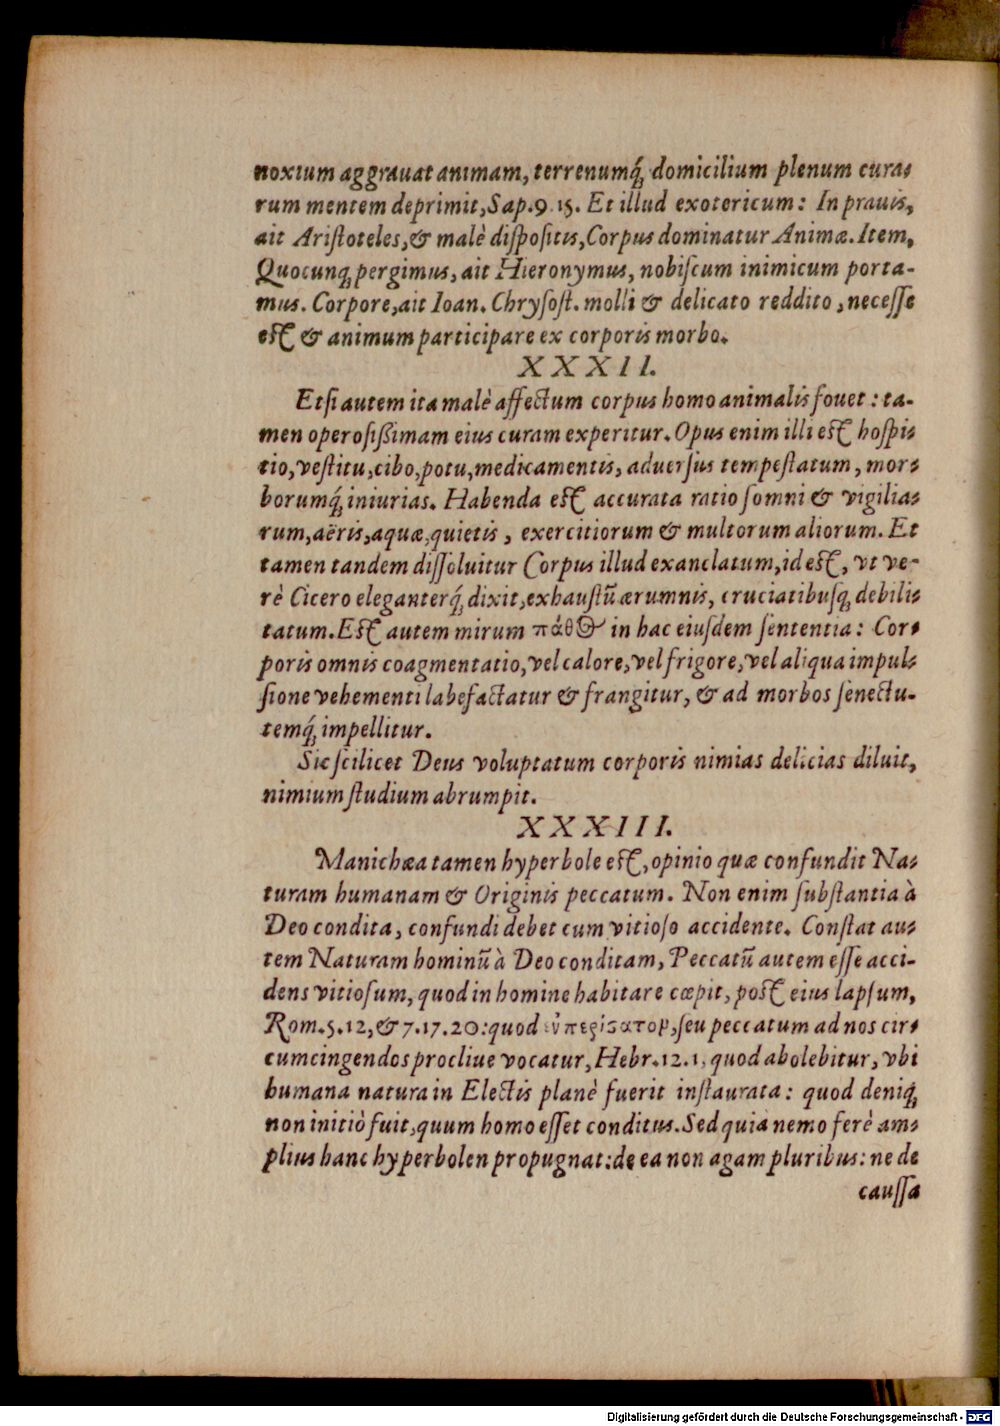 noxium aggrauat animam, terrenumq́; domicilium plenum cura-
rum mentem deprimit, Sap. 9. 15. Et illud exotericum: In prauis,
ait Aristoteles, & malè dispositis, Corpus dominatur Animæ. Item,
Quocunq; pergimus, ait Hieronymus, nobiscum inimicum porta-
mus. Corpore, ait Ioan. Chrysost. molli & delicato reddito, necesse
est & animum participare ex corporis morbo.
XXXII.
Etsi autem ita malè affectum corpus homo animalis fouet: ta-
men operosißimam eius curam experitur. Opus enim illi est hospi-
tio, vestitu, cibo, potu, medicamentis, aduersus tempestatum, mor-
borumq́; iniurias. Habenda est accurata ratio somni & vigilia-
rum, aëris, aquæ, quietis, exercitiorum & multorum aliorum. Et
tamen tandem dissoluitur Corpus illud exanclatum, id est, vt ve-
rè Cicero eleganterq́; dixit, exhaustũ ærumnis, cruciatibusq; debili-
tatum. Est autem mirum πάθος in hac eiusdem sententia: Cor-
poris omnis coagmentatio, vel calore, vel frigore, vel aliqua impul-
sione vehementi labefactatur & frangitur, & ad morbos senectu-
temq́; impellitur.
Sic scilicet Deus voluptatum corporis nimias delicias diluit,
nimium studium abrumpit.
XXXIII.
Manichæa tamen hyperbole est, opinio quæ confundit Na-
turam humanam & Originis peccatum. Non enim substantia à
Deo condita, confundi debet cum vitioso accidente. Constat au-
tem Naturam hominũ à Deo conditam, Peccatũ autem esse acci-
dens vitiosum, quod in homine habitare cœpit, post eius lapsum,
Rom. 5. 12, & 7. 17. 20: quod εὐπερίστατον, seu peccatum ad nos cir-
cumcingendos procliue vocatur, Hebr. 12. 1, quod abolebitur, vbi
humana natura in Electis planè fuerit instaurata: quod deniq́;
non initiò fuit, quum homo esset conditus. Sed quia nemo ferè am-
plius hanc hyperbolen propugnat: de ea non agam pluribus: ne de
caussa
Digitalisierung gefördert durch die Deutsche Forschungsgemeinschaft - DFG